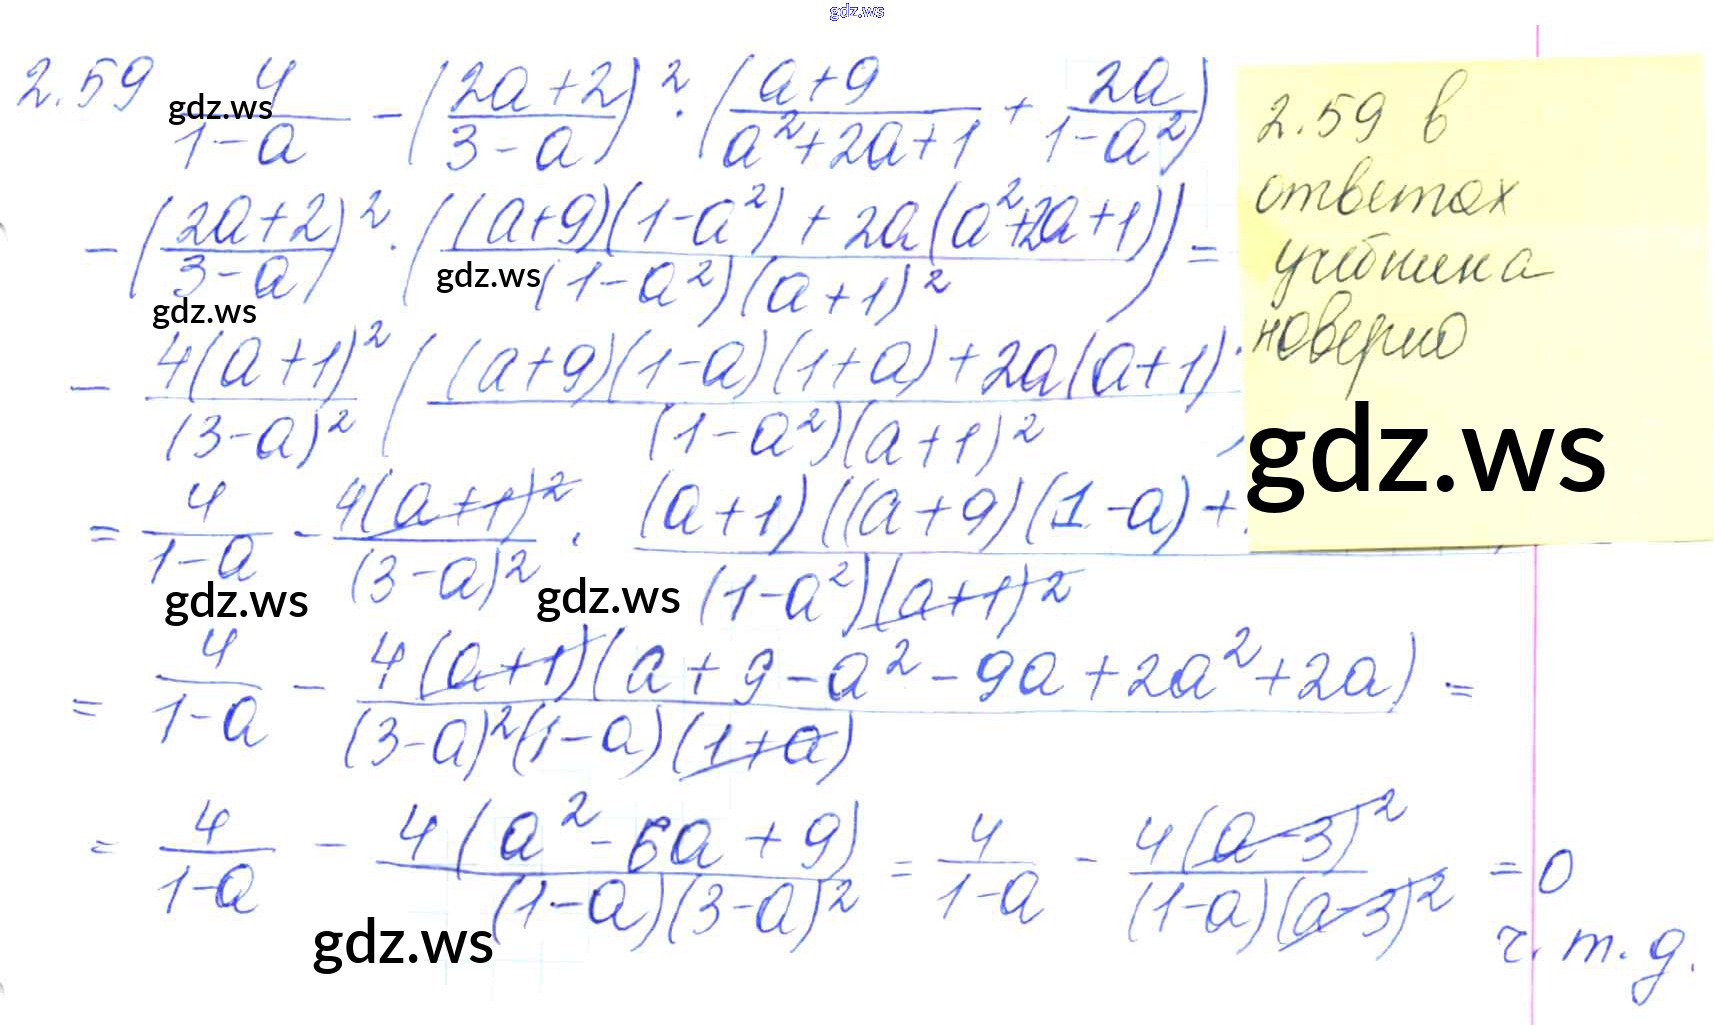 gdz.ws
2.59 4/(1-a) - ((2a+2)/(3-a))² · ((a+9)/(a²+2a+1) + 2a/(1-a²))
gdz.ws
- ((2a+2)/(3-a))² · (((a+9)(1-a²) + 2a(a²+2a+1))/((1-a²)(a+1)²)) =
gdz.ws
gdz.ws
- 4(a+1)²/(3-a)² (((a+9)(1-a)(1+a) + 2a(a+1)·/((1-a²)(a+1)²
= 4/(1-a) - 4(a+1)²/(3-a)² · (a+1)((a+9)(1-a)+/((1-a²)(a+1)²)
gdz.ws gdz.ws
= 4/(1-a) - 4(a+1)(a+9-a²-9a+2a²+2a)/((3-a)²(1-a)(1+a)) =
= 4/(1-a) - 4(a²-6a+9)/((1-a)(3-a)²) = 4/(1-a) - 4(a-3)²/((1-a)(a-3)²) = 0
gdz.ws
ч.т.д.
2.59 в
ответах
учебника
неверно
gdz.ws